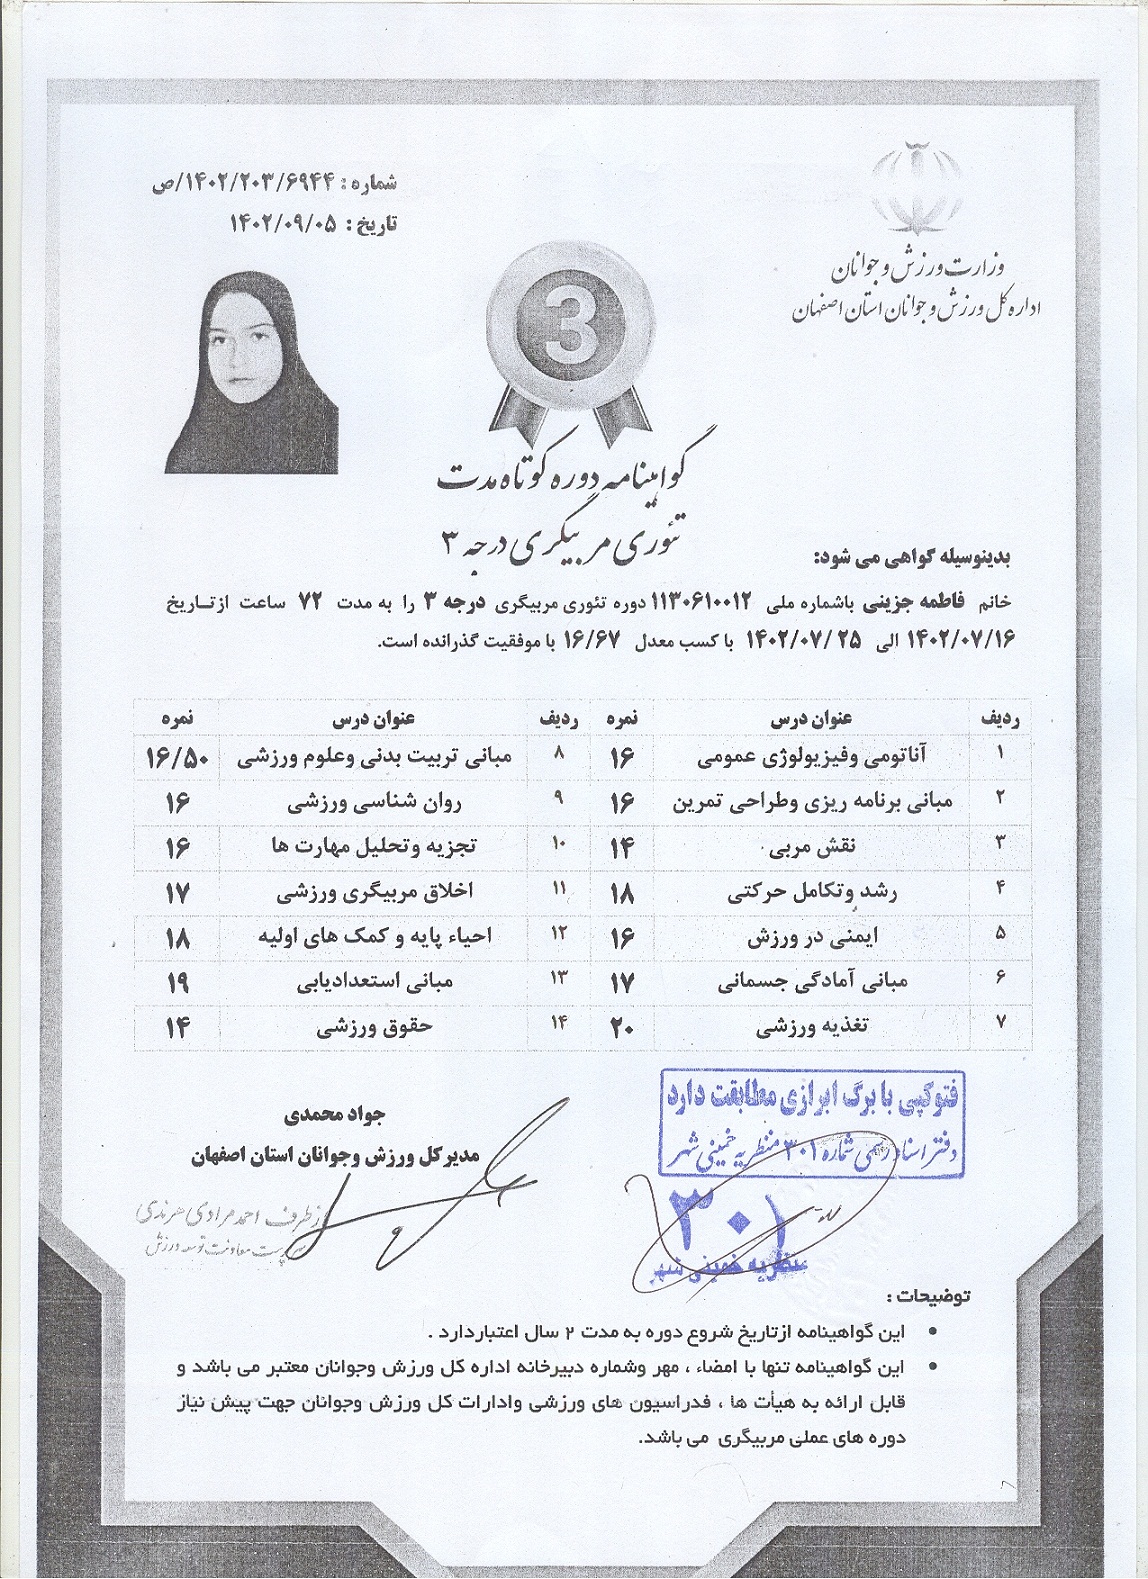 شماره : ۱۴۰۲/۲۰۳/۶۹۴۴/ص
تاریخ : ۱۴۰۲/۰۹/۰۵
وزارت ورزش و جوانان
اداره کل ورزش و جوانان استان اصفهان
3
گواهینامه دوره کوتاه مدت
تئوری مربیگری درجه ۳
بدینوسیله گواهی می شود:
خانم فاطمه جزینی باشماره ملی ۱۱۳۰۶۱۰۰۱۲ دوره تئوری مربیگری درجه ۳ را به مدت ۷۲ ساعت ازتاریخ
۱۴۰۲/۰۷/۱۶ الی ۱۴۰۲/۰۷/۲۵ با کسب معدل ۱۶/۶۷ با موفقیت گذرانده است.
ردیف عنوان درس نمره ردیف عنوان درس نمره
۱ آناتومی وفیزیولوژی عمومی ۱۶ ۸ مبانی تربیت بدنی وعلوم ورزشی ۱۶/۵۰
۲ مبانی برنامه ریزی وطراحی تمرین ۱۶ ۹ روان شناسی ورزشی ۱۶
۳ نقش مربی ۱۴ ۱۰ تجزیه وتحلیل مهارت ها ۱۶
۴ رشد وتکامل حرکتی ۱۸ ۱۱ اخلاق مربیگری ورزشی ۱۷
۵ ایمنی در ورزش ۱۶ ۱۲ احیاء پایه و کمک های اولیه ۱۸
۶ مبانی آمادگی جسمانی ۱۷ ۱۳ مبانی استعدادیابی ۱۹
۷ تغذیه ورزشی ۲۰ ۱۴ حقوق ورزشی ۱۴
فتوکپی با برگ ابرازی مطابقت دارد
دفتر اسناد رسمی شماره ۳۰۱ منظریه خمینی شهر
۳۰۱
منظریه خمینی شهر
جواد محمدی
مدیرکل ورزش وجوانان استان اصفهان
از طرف احمد مرادی هرندی
سرپرست معاونت توسعه ورزش
توضیحات :
• این گواهینامه ازتاریخ شروع دوره به مدت ۲ سال اعتباردارد .
• این گواهینامه تنها با امضاء ، مهر وشماره دبیرخانه اداره کل ورزش وجوانان معتبر می باشد و
قابل ارائه به هیأت ها ، فدراسیون های ورزشی وادارات کل ورزش وجوانان جهت پیش نیاز
دوره های عملی مربیگری می باشد.